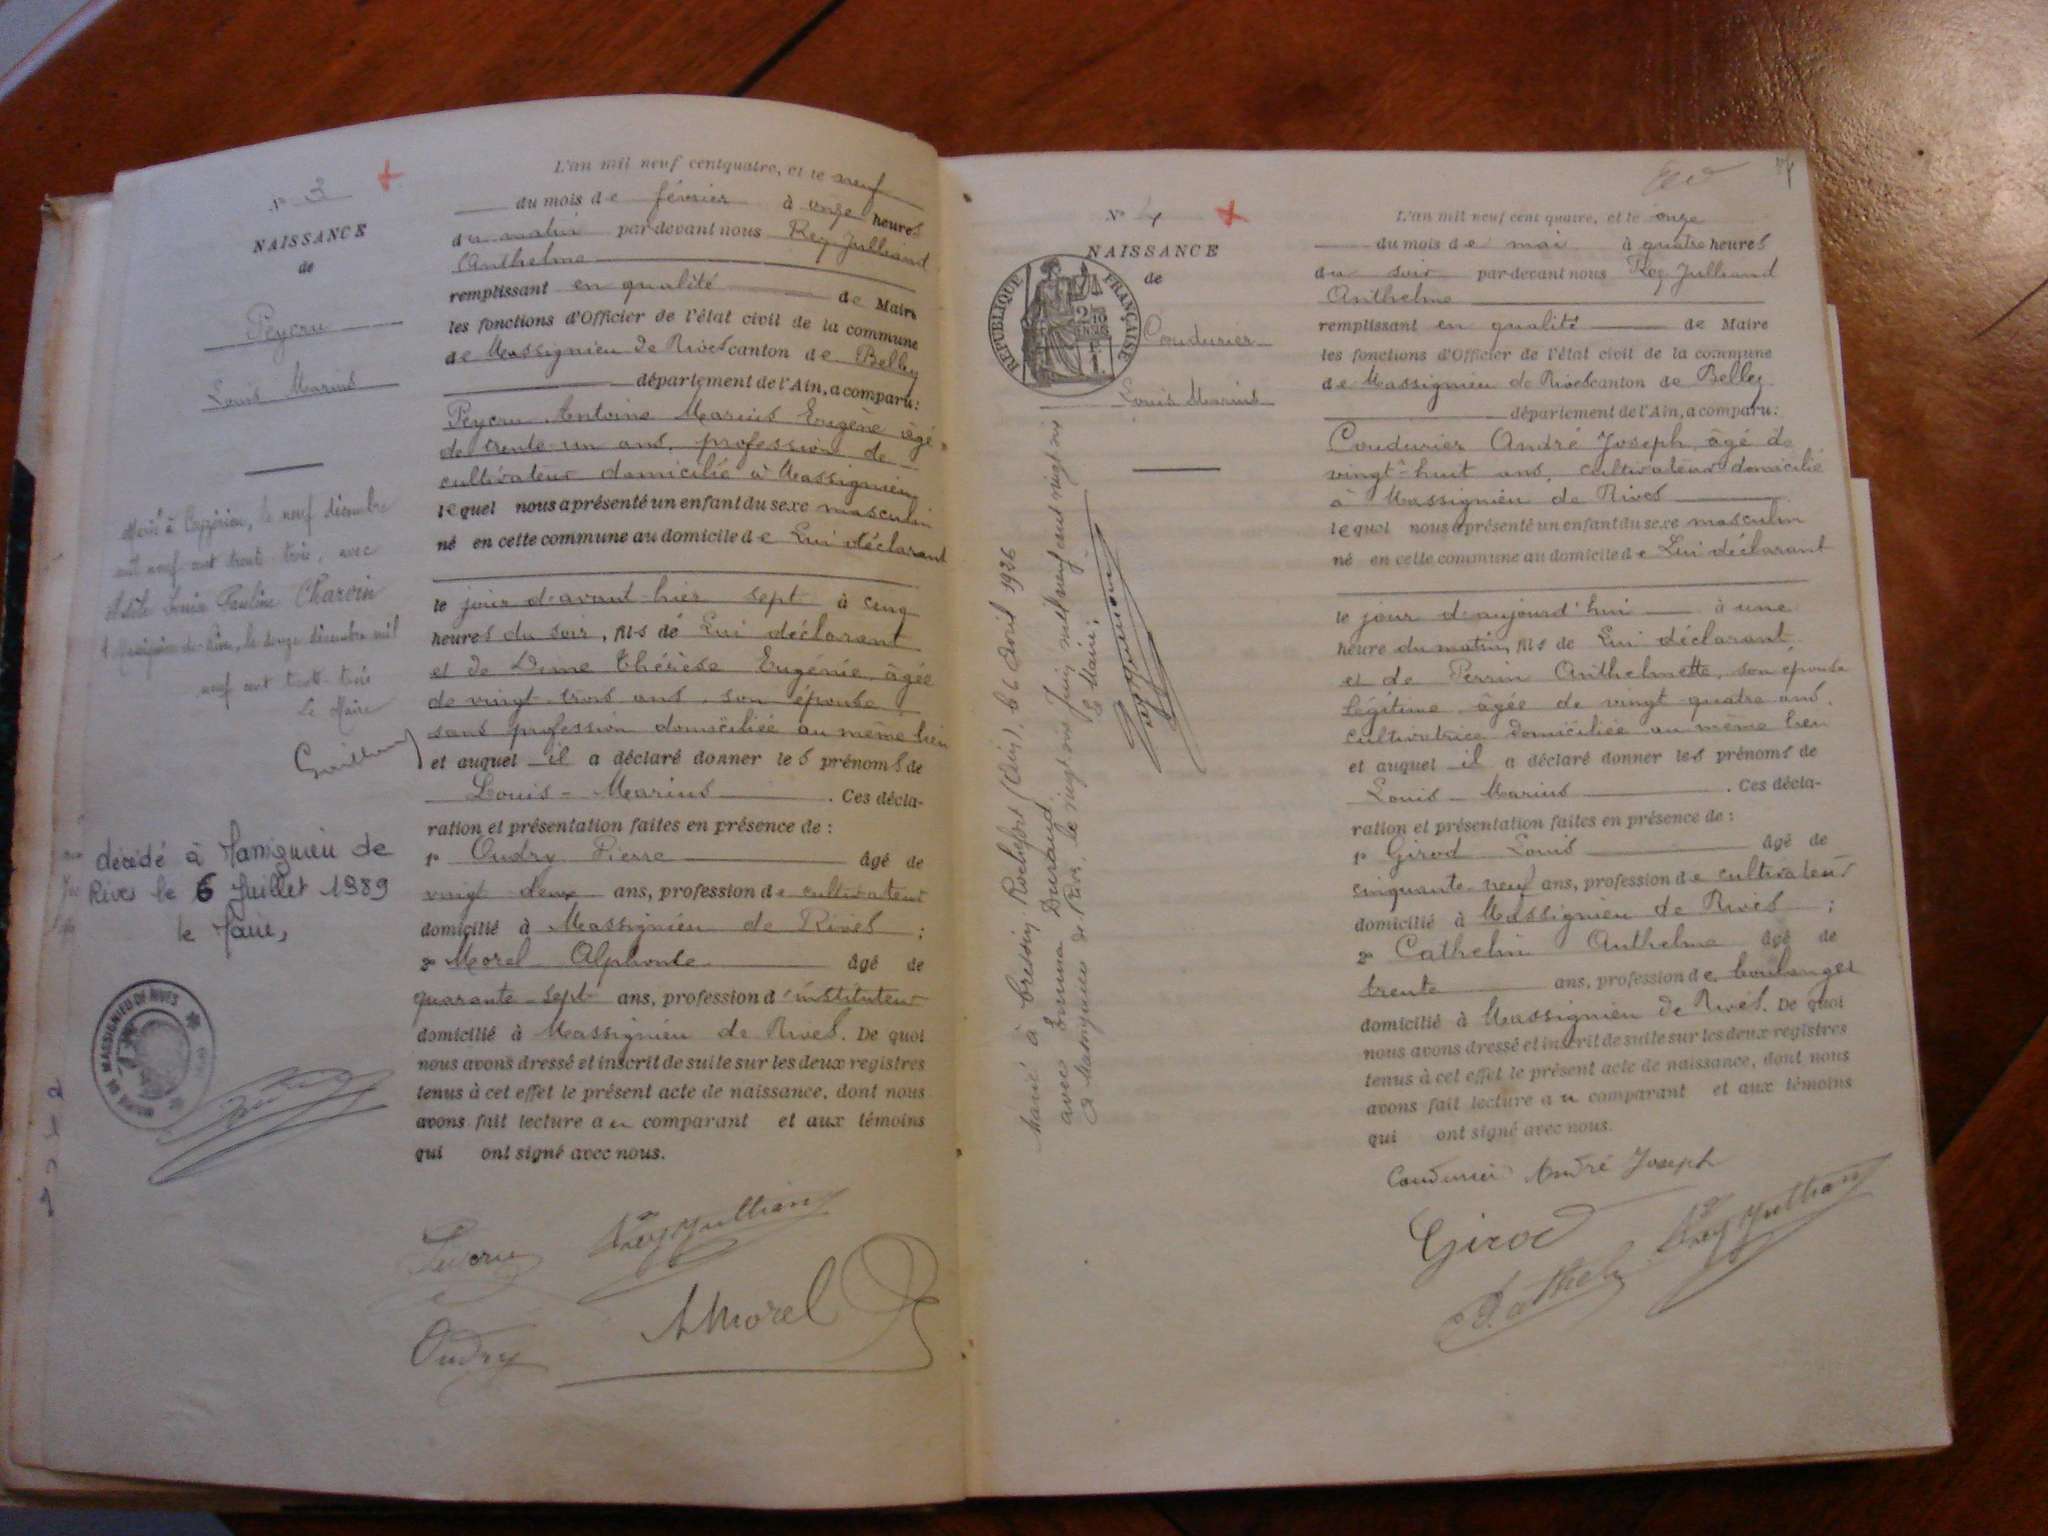 N° 3
NAISSANCE
de
Peycru
Louis Marius
Marié à Ceyzérieu, le neuf décembre
mil neuf cent trente trois, avec
Pauline Charvin
Massignieu-de-Rives, le douze décembre mil
neuf cent trente-trois
Le Maire
décédé à Massignieu de
Rives le 6 Juillet 1989
le Maire,
MAIRIE DE MASSIGNIEU DE RIVES
L'an mil neuf cent quatre, et le neuf
du mois de février à onze heures
du matin par-devant nous Rey Julliand
Anthelme
remplissant en qualité de Maire
les fonctions d'Officier de l'état civil de la commune
de Massignieu de Rives canton de Belley
département de l'Ain, a comparu:
Peycru Antoine Marius Eugène âgé
de trente-un ans, profession de
cultivateur domicilié à Massignieu
lequel nous a présenté un enfant du sexe masculin
né en cette commune au domicile de Lui déclarant
le jour d'avant-hier sept à cinq
heures du soir, fils de Lui déclarant
et de Thérèse Eugénie, âgée
de vingt-trois ans, son épouse,
sans profession domiciliée au même lieu
et auquel il a déclaré donner les prénoms de
Louis-Marius. Ces décla-
ration et présentation faites en présence de :
1° Oudry Pierre âgé de
vingt deux ans, profession de cultivateur
domicilié à Massignieu de Rives ;
2° Morel Alphonse âgé de
quarante-sept ans, profession d'instituteur
domicilié à Massignieu de Rives. De quoi
nous avons dressé et inscrit de suite sur les deux registres
tenus à cet effet le présent acte de naissance, dont nous
avons fait lecture au comparant et aux témoins
qui ont signé avec nous.
Peycru Rey Julliand
AMorel
Oudry
N° 4
NAISSANCE
de
RÉPUBLIQUE FRANÇAISE
2/10 EN SUS
Coudurier
Louis Marius
Marié à Cressin-Rochefort (Ain), le 6 avril 1926
avec Emma Durand.
à Massignieu de Rives, le vingt six Juin mil neuf cent vingt six
Le Maire,
L'an mil neuf cent quatre, et le onze
du mois de mai à quatre heures
du soir par-devant nous Rey Julliand
Anthelme
remplissant en qualité de Maire
les fonctions d'Officier de l'état civil de la commune
de Massignieu de Rives canton de Belley
département de l'Ain, a comparu:
Coudurier André Joseph, âgé de
vingt-huit ans, cultivateur domicilié
à Massignieu de Rives
lequel nous a présenté un enfant du sexe masculin
né en cette commune au domicile de Lui déclarant
le jour d'aujourd'hui à une
heure du matin, fils de Lui déclarant
et de Perrin Anthelmette, son épouse
légitime âgée de vingt quatre ans,
cultivatrice domiciliée au même lieu
et auquel il a déclaré donner les prénoms de
Louis-Marius. Ces décla-
ration et présentation faites en présence de :
1° Girod Louis âgé de
cinquante-neuf ans, profession de cultivateur
domicilié à Massignieu de Rives ;
2° Cathelin Anthelme âgé de
trente ans, profession de boulanger
domicilié à Massignieu de Rives. De quoi
nous avons dressé et inscrit de suite sur les deux registres
tenus à cet effet le présent acte de naissance, dont nous
avons fait lecture au comparant et aux témoins
qui ont signé avec nous.
Coudurier André Joseph
Girod Rey Julliand
Cathelin